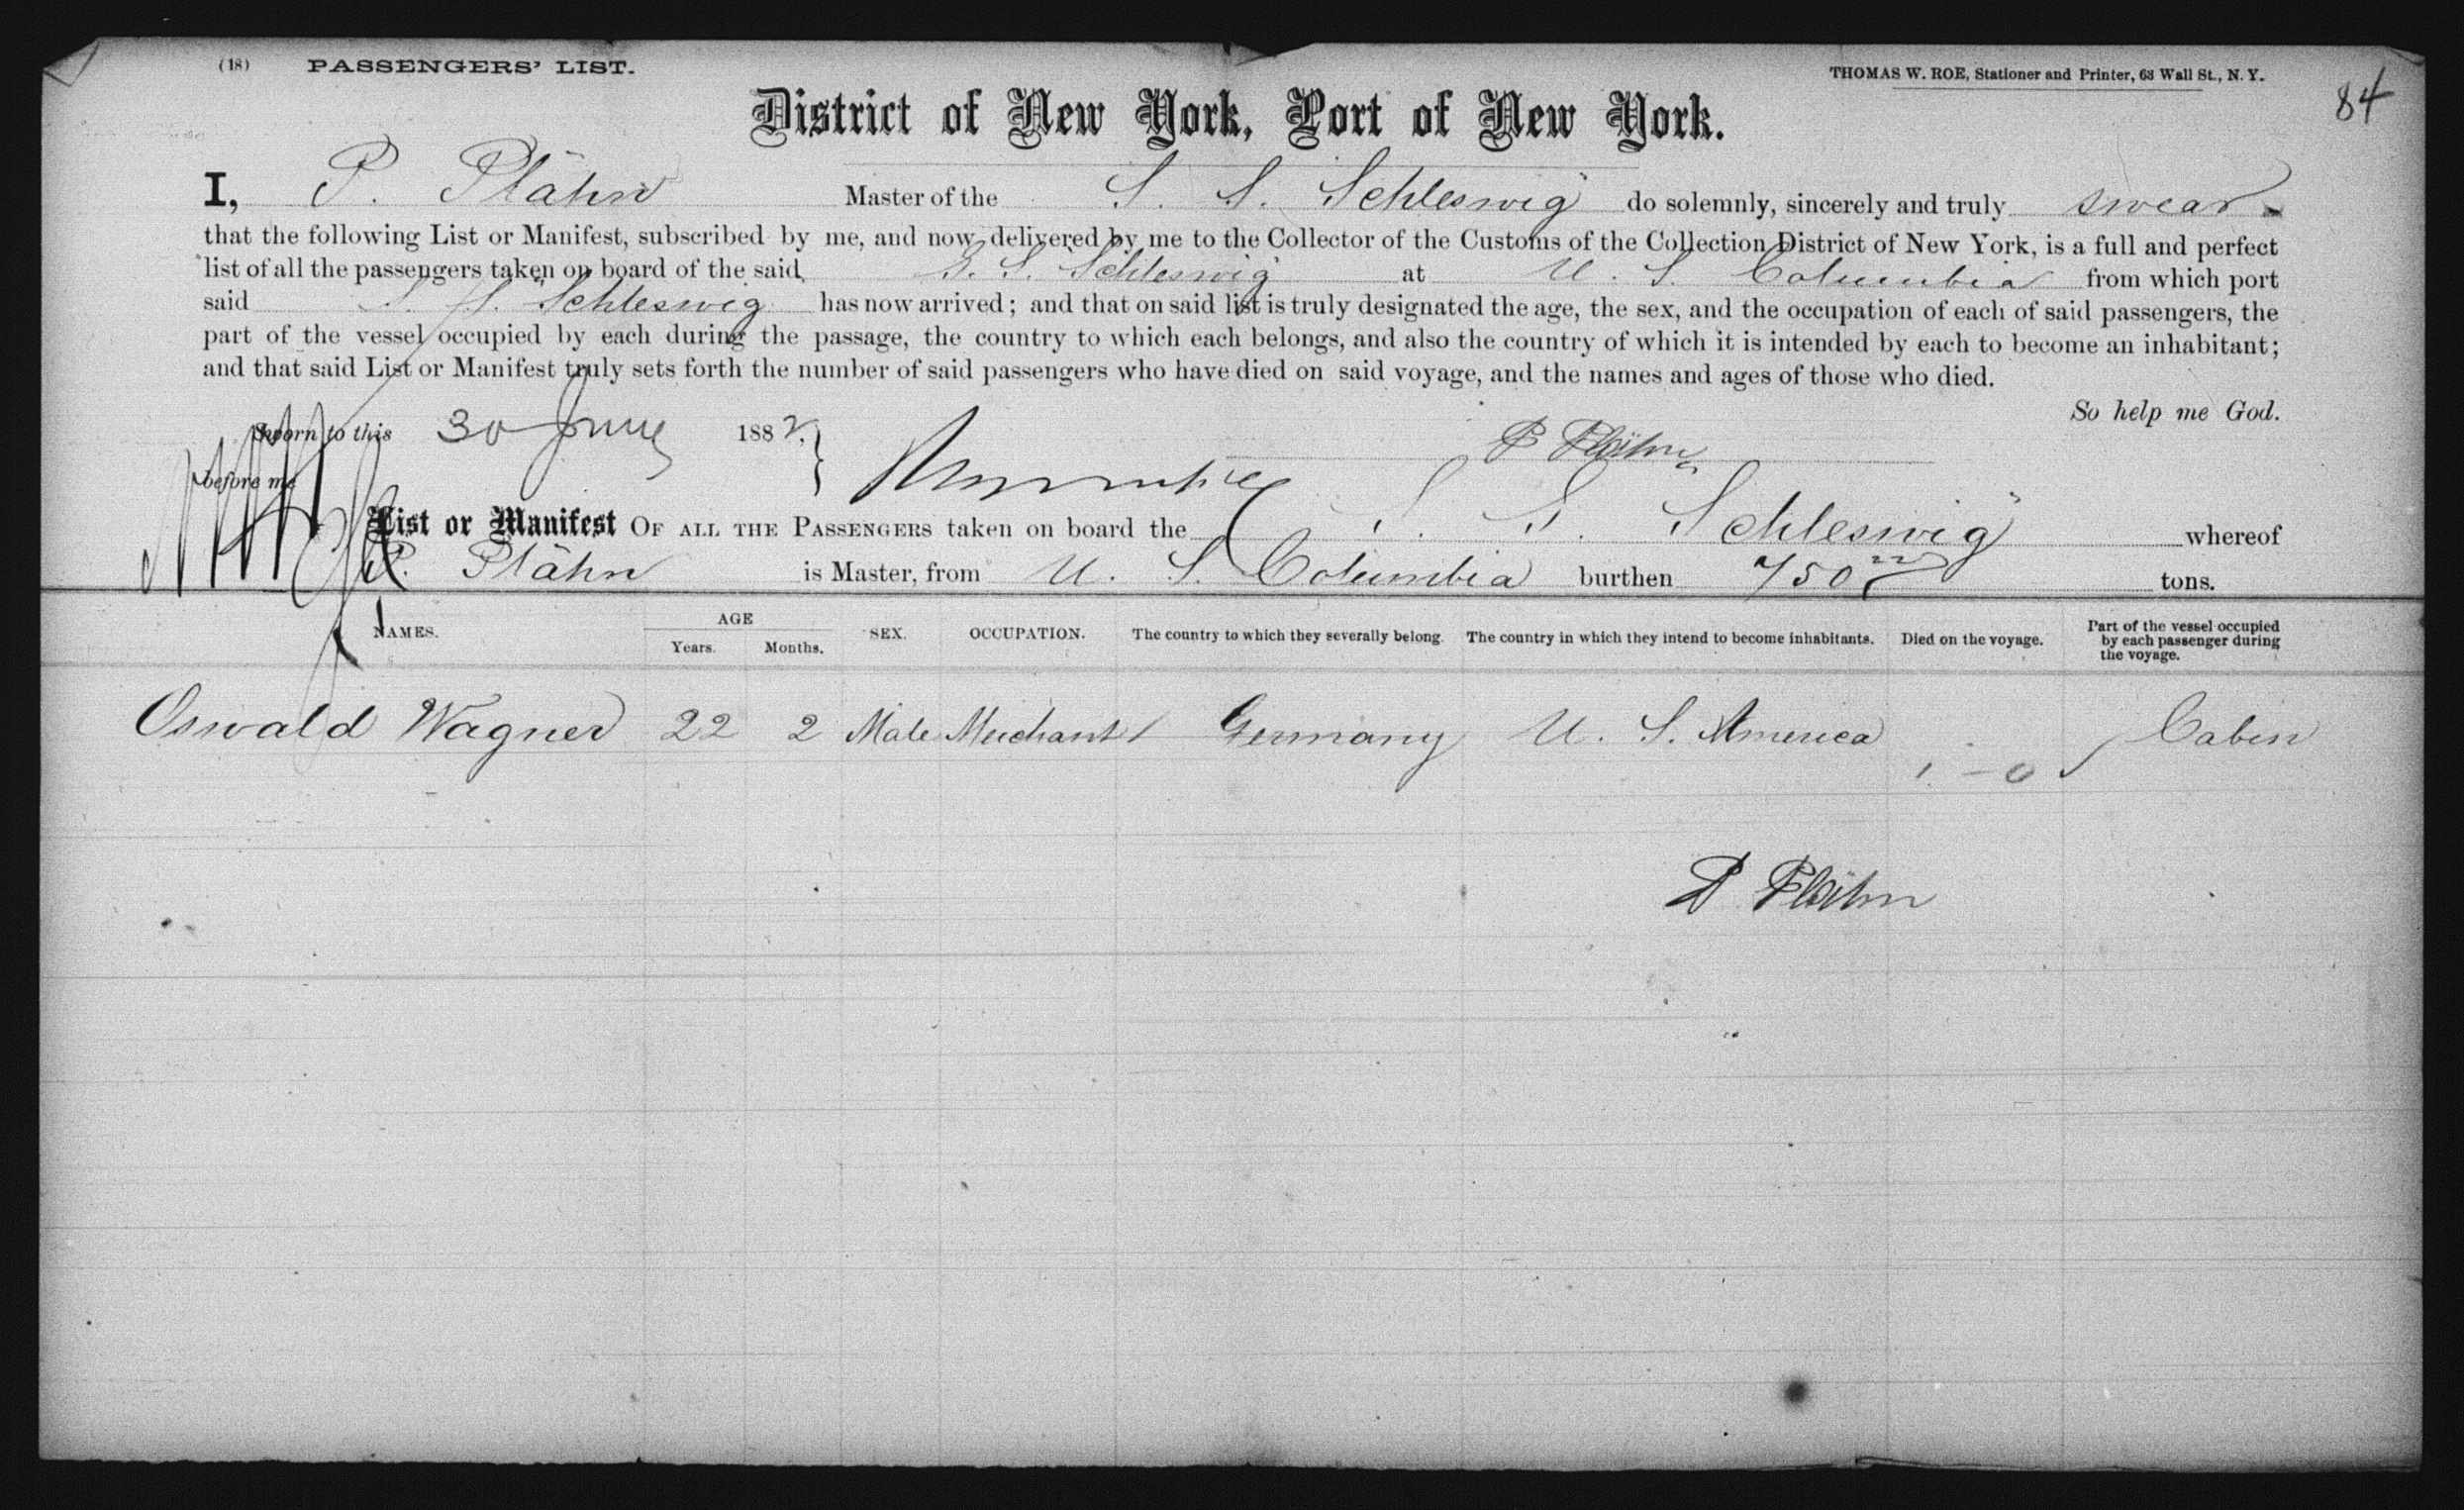 (18) PASSENGERS' LIST. THOMAS W. ROE, Stationer and Printer, 63 Wall St., N. Y.
84
District of New York, Port of New York.
I, P. Plähn Master of the S. S. Schleswig do solemnly, sincerely and truly swear
that the following List or Manifest, subscribed by me, and now delivered by me to the Collector of the Customs of the Collection District of New York, is a full and perfect
list of all the passengers taken on board of the said S. S. "Schleswig" at U. S. Columbia from which port
said S. S. "Schleswig has now arrived; and that on said list is truly designated the age, the sex, and the occupation of each of said passengers, the
part of the vessel occupied by each during the passage, the country to which each belongs, and also the country of which it is intended by each to become an inhabitant;
and that said List or Manifest truly sets forth the number of said passengers who have died on said voyage, and the names and ages of those who died.
So help me God.
Sworn to this 30 June 1882.
P Plähn
before me
List or Manifest OF ALL THE PASSENGERS taken on board the S. S. Schleswig" whereof
P. Plähn is Master, from U. S. Columbia burthen 750 tons.
NAMES. AGE Years. Months. SEX. OCCUPATION. The country to which they severally belong. The country in which they intend to become inhabitants. Died on the voyage. Part of the vessel occupied by each passenger during the voyage.
Oswald Wagner 22 2 Male Merchant Germany U. S. America Cabin
1 - 0
P Plähn